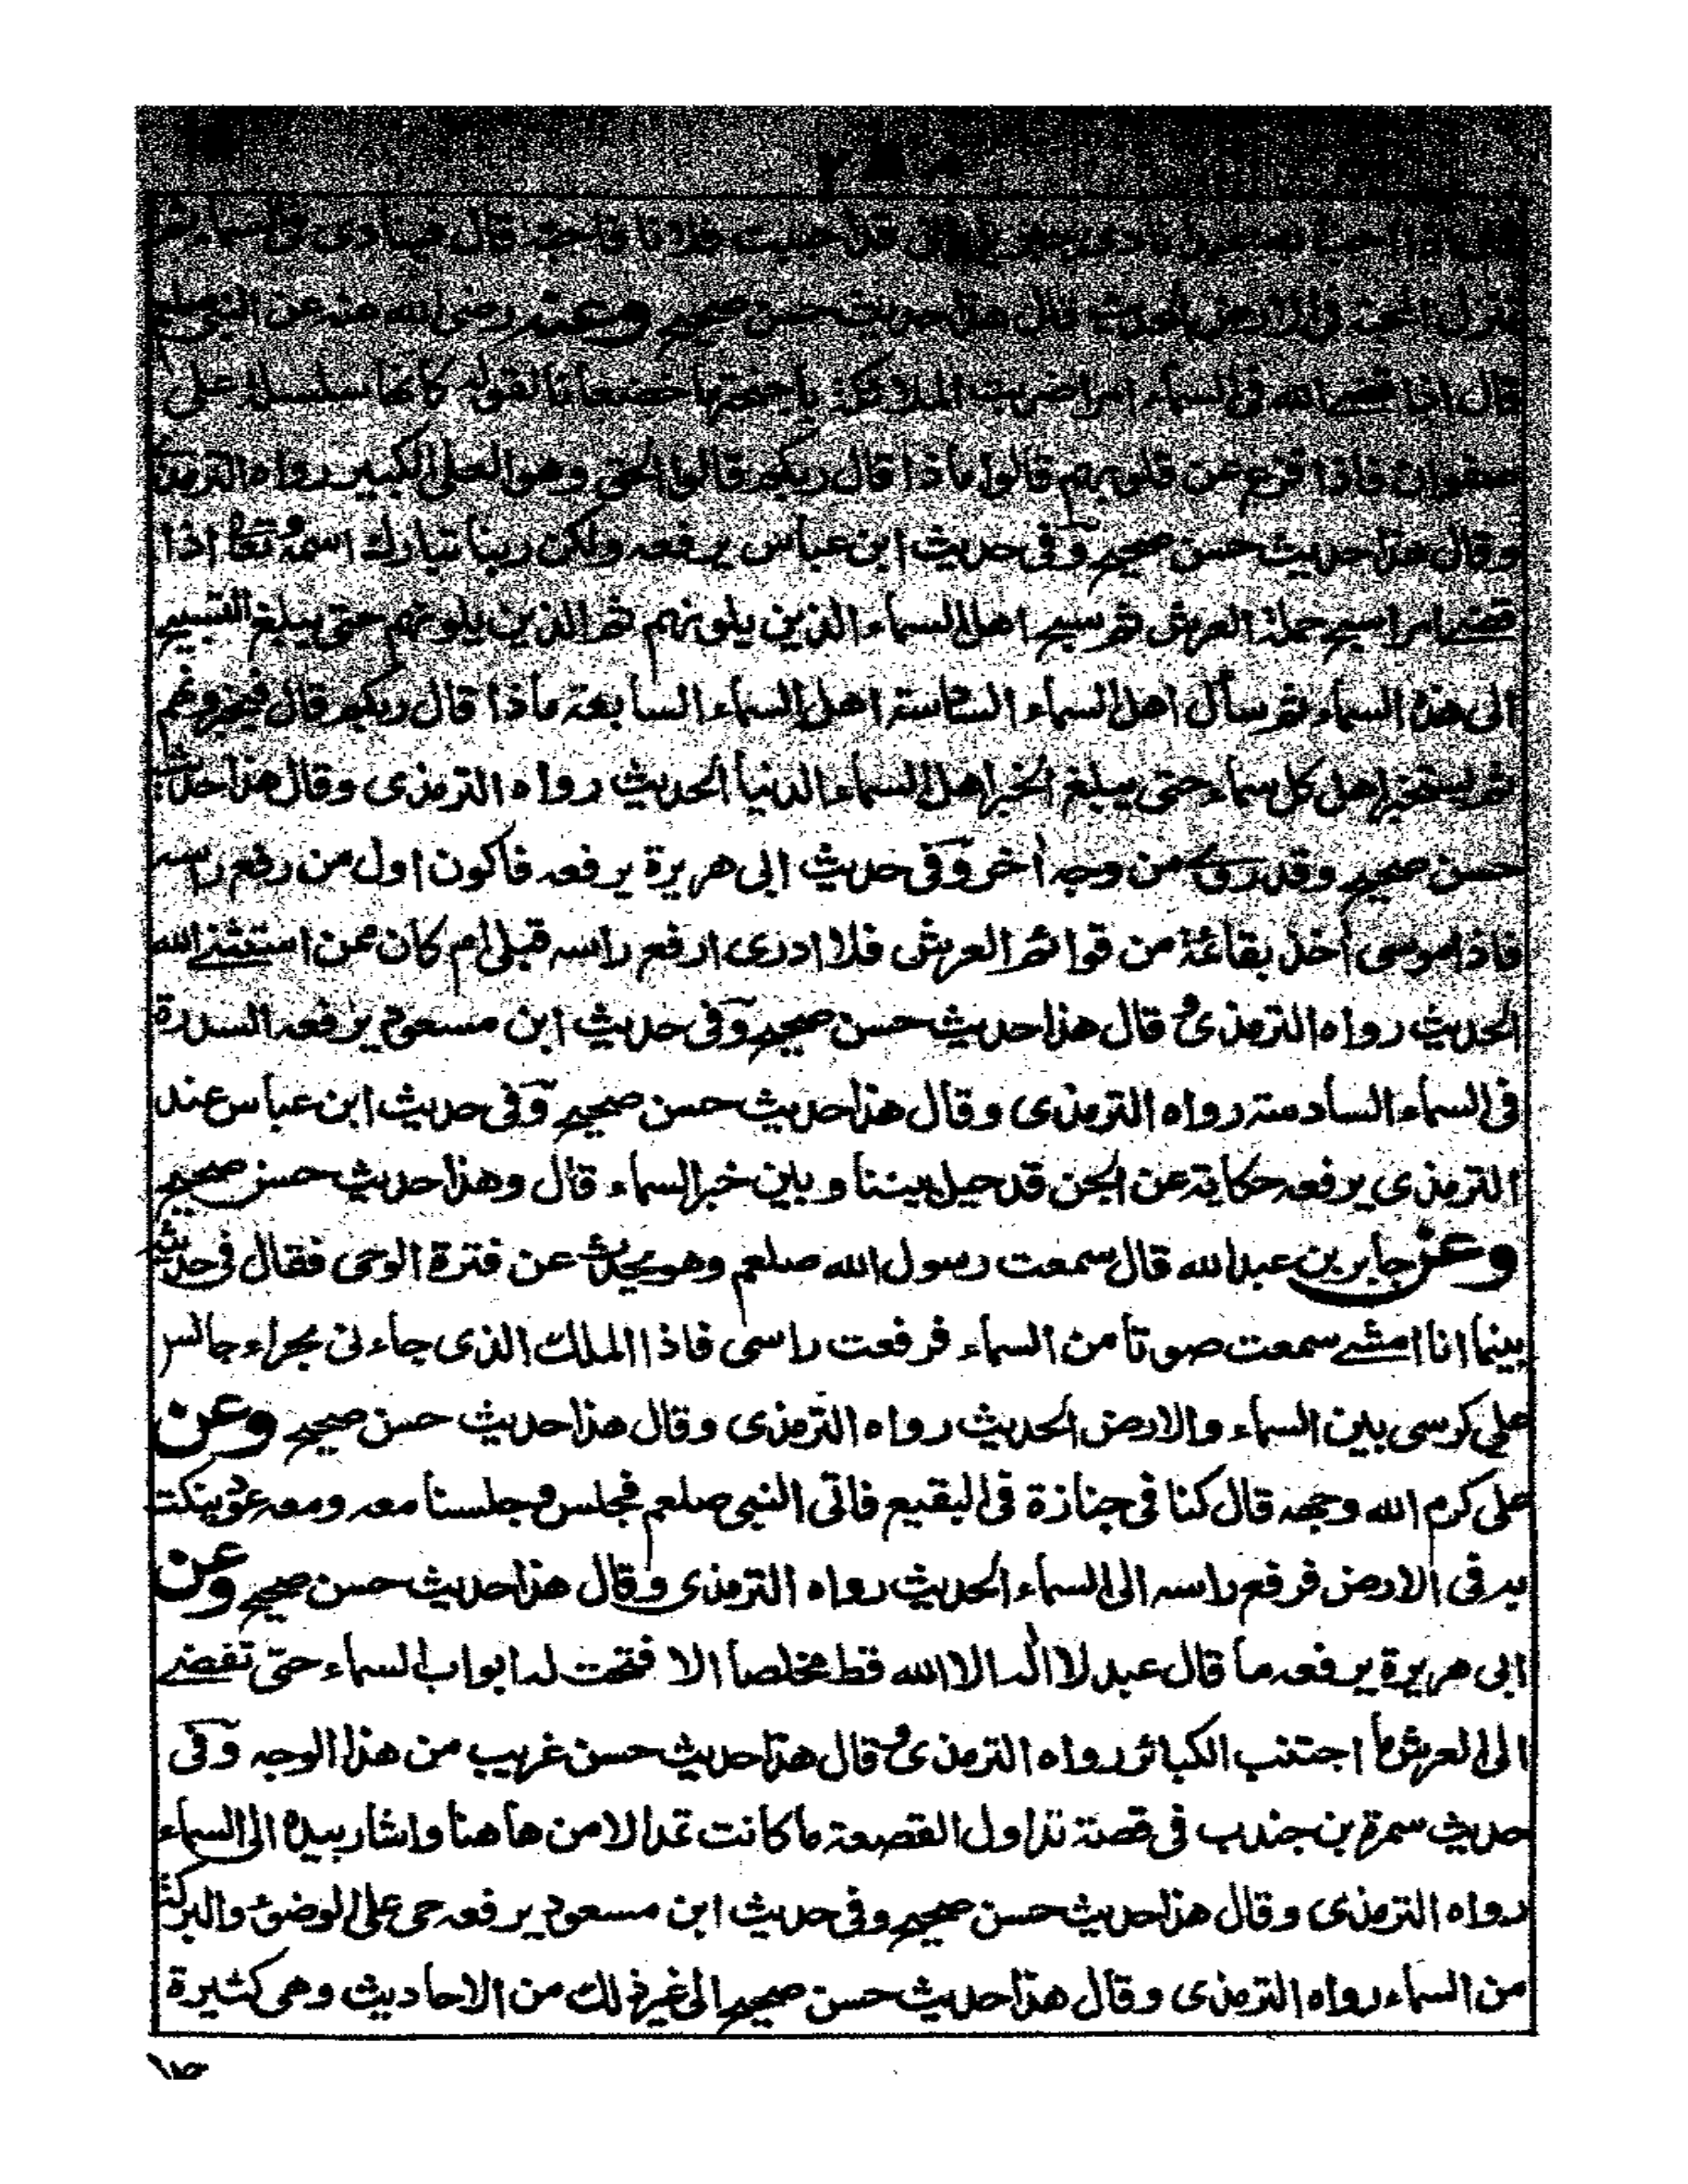 قال اذا احب الله عبدا نادى جبريل انى قد احببت فلانا فاحبه قال فينادى فى السماء ثم
تنزل المحبة فى الارض الحديث قال هذا حديث حسن صحيح وعنه رضى الله عنه عن النبى صلعم
قال اذا قضى الله فى السماء امرا ضربت الملائكة باجنحتها خضعانا لقوله كانها سلسلة على
صفوان فاذا فزع عن قلوبهم قالوا ماذا قال ربكم قالوا الحق وهو العلى الكبير رواه الترمذى
وقال هذا حديث حسن صحيح وفى حديث ابن عباس يرفعه ولكن ربنا تبارك اسمه وتعا اذا
قضى امرا سبح حملة العرش ثم سبح اهل السماء الذين يلونهم ثم الذين يلونهم حتى يبلغ التسبيح
الى هذه السماء ثم سأل اهل السماء السادسة اهل السماء السابعة ماذا قال ربكم قال فيخبرونهم
ثم يستخبر اهل كل سماء حتى يبلغ الخبر اهل السماء الدنيا الحديث رواه الترمذى وقال هذا حديث
حسن صحيح وقد روى من وجه أخر وفى حديث ابى هريرة يرفعه فاكون اول من رفع راسه
فاذا موسى أخذ بقائمة من قوائم العرش فلا ادرى ارفع راسه قبلى ام كان ممن استثنى الله
الحديث رواه الترمذى وقال هذا حديث حسن صحيح وفى حديث ابن مسعود يرفعه السدرة
فى السماء السادسة رواه الترمذى وقال هذا حديث حسن صحيح وفى حديث ابن عباس عند
الترمذى يرفعه حكاية عن الجن قد حيل بيننا وبين خبر السماء قال وهذا حديث حسن صحيح
وعن جابر بن عبد الله قال سمعت رسول الله صلعم وهو يحدث عن فترة الوحى فقال فى حديثه
بينما انا امشى سمعت صوتا من السماء فرفعت راسى فاذا الملك الذى جاءنى بحراء جالس
على كرسى بين السماء والارض الحديث رواه الترمذى وقال هذا حديث حسن صحيح وعن
على كرم الله وجهه قال كنا فى جنازة فى البقيع فاتى النبى صلعم فجلس وجلسنا معه ومعه عود ينكت
به فى الارض فرفع راسه الى السماء الحديث رواه الترمذى وقال هذا حديث حسن صحيح وعن
ابى هريرة يرفعه ما قال عبد لا اله الا الله قط مخلصا الا فتحت له ابواب السماء حتى تفضى
الى العرش ما اجتنب الكبائر رواه الترمذى وقال هذا حديث حسن غريب من هذا الوجه وفى
حديث سمرة بن جندب فى قصة تداول القصعة ما كانت تمد الا من هاهنا واشار بيده الى السماء
رواه الترمذى وقال هذا حديث حسن صحيح وفى حديث ابن مسعود يرفعه حى على الوضوء والبركة
من السماء رواه الترمذى وقال هذا حديث حسن صحيح الى غير ذلك من الاحاديث وهى كثيرة